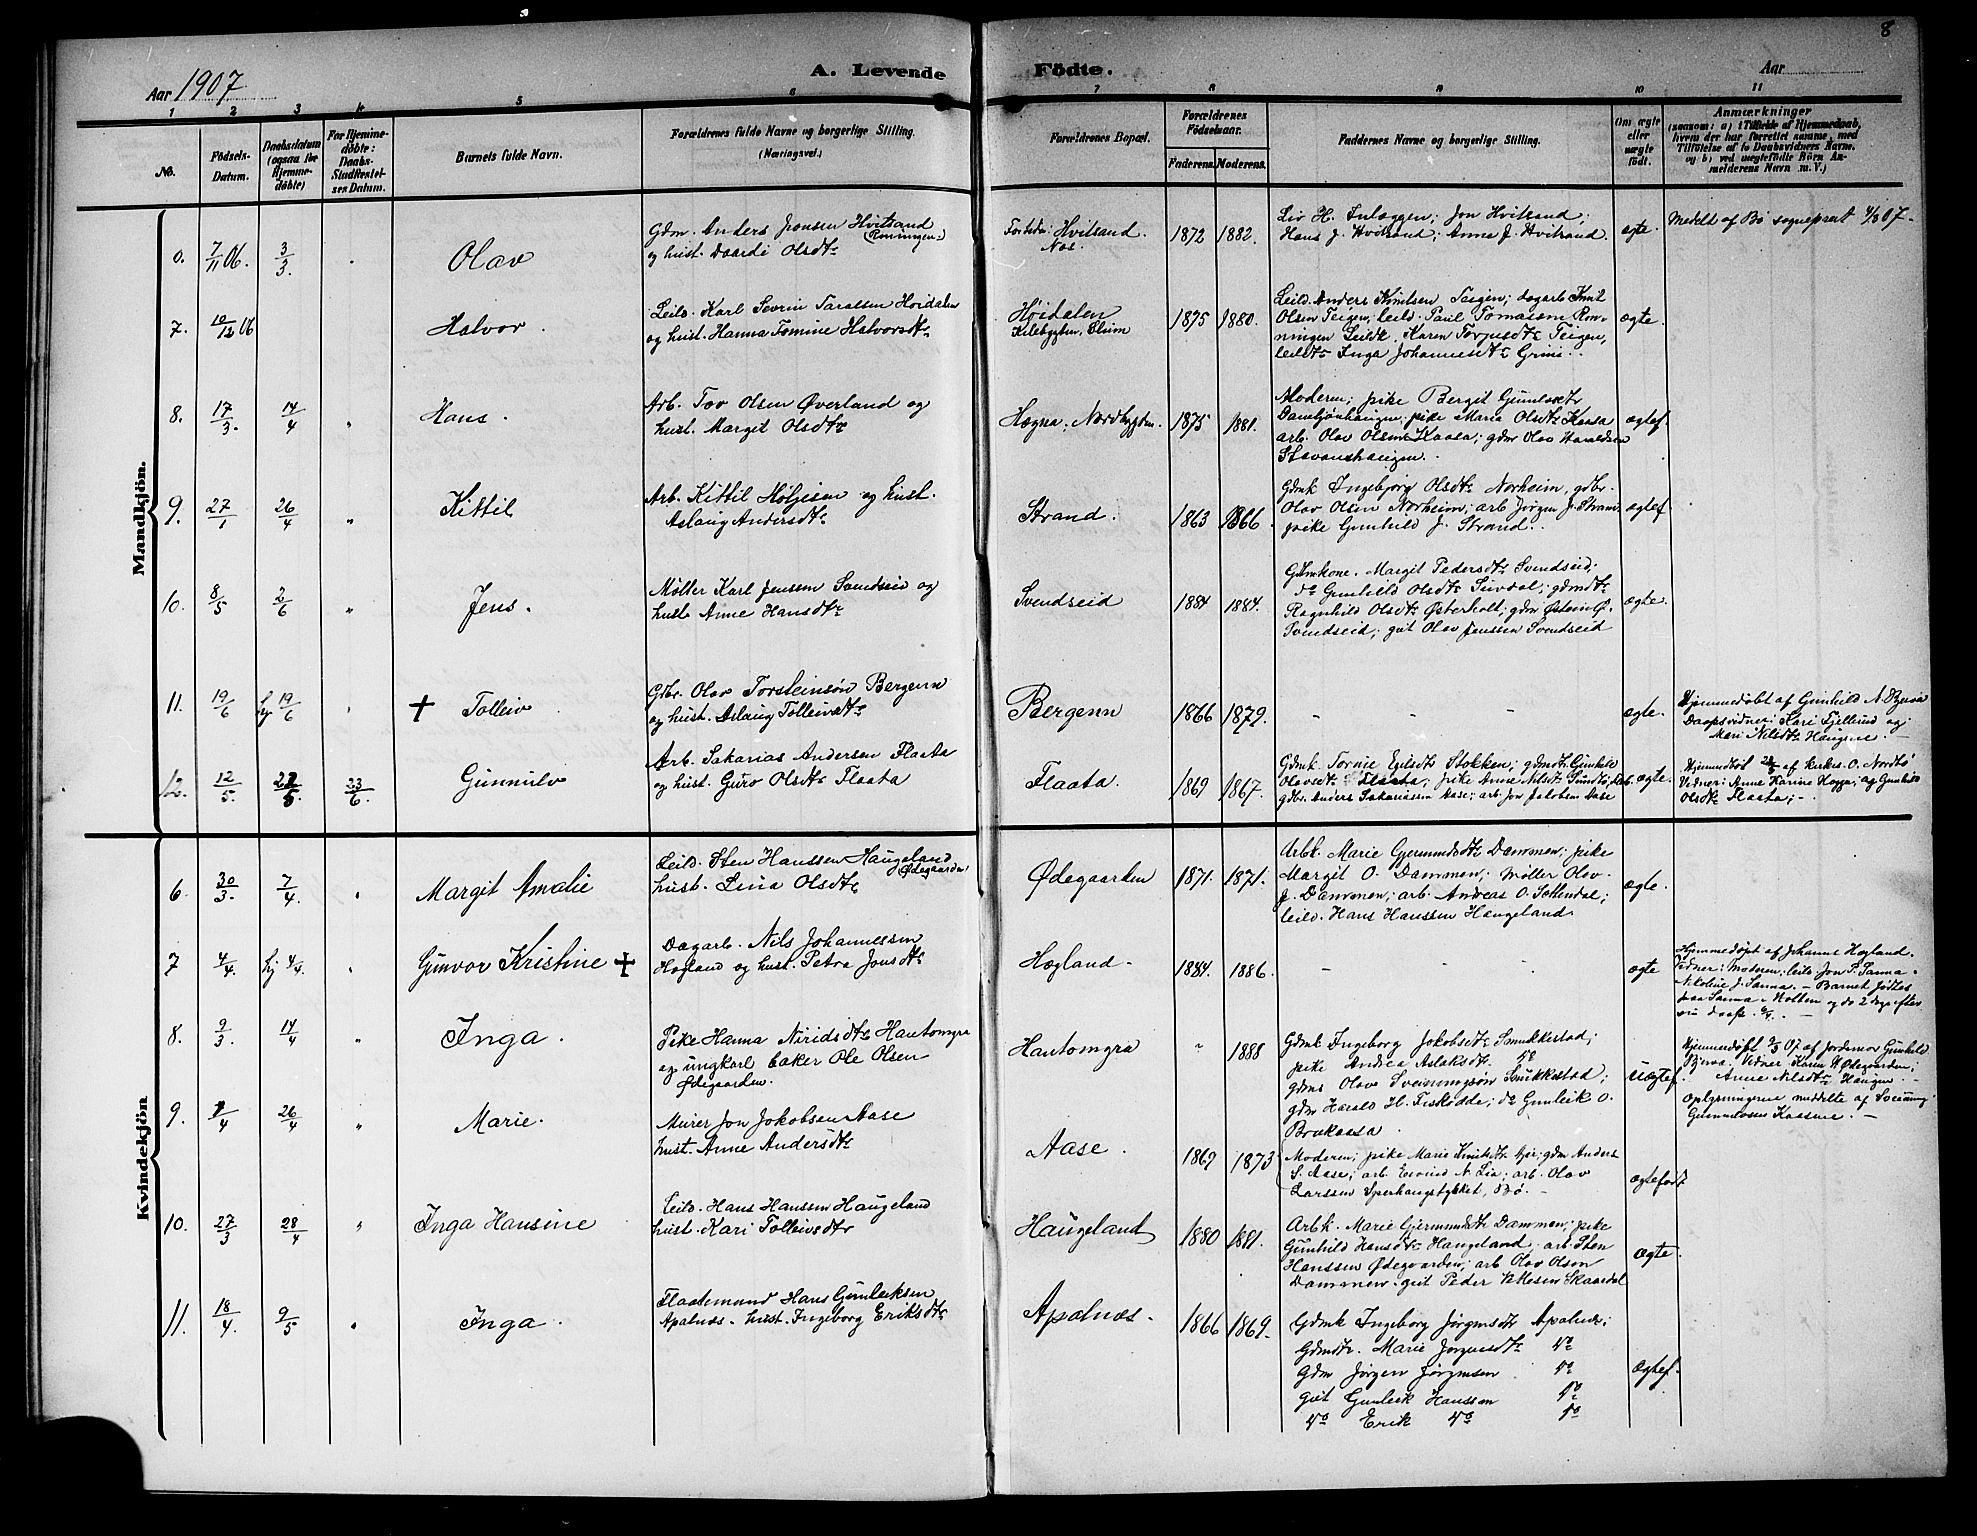 8
Aar 1907
A. Levende Födte.
Aar
1 2 3 4 5 6 7 8 9 10 11
No.
Födsels-
Datum.
Daabsdatum
(ogsaa for
Hjemme-
döbte)
For Hjemme-
döbte:
Daabs-
Stadfæstel-
ses Datum.
Barnets fulde Navn.
Forældrenes fulde Navne og borgerlige Stilling.
(Næringsvei.)
Forældrenes Bopæl.
Forældrenes
Födselsaar.
Faderens. Moderens.
Faddernes Navne og borgerlige Stilling.
Om ægte
eller
uægte
födt.
Anmærkninger
(saasom: a) i Tilfælde af Hjemmedaab,
hvem der har forrettet samme, med
Tilföielse af to Daabsvidners Navne,
og b) ved uægtefödte Börn An-
melderens Navn m. V.)
Mandkjön.
0. 7/11 06. 3/3
Olav
Gdm. Anders Jonsen Hvitsand
og hust. Daardi Olsdtr
Hvitsand.
Næs.
1872 1882.
Liv H. Inlæggen; Jon Hvitsand;
Hans J. Hvitsand; Anne J. Hvitsand.
ægte.
Meddelt af Bø sogneprest 4/3 07.
7. 10/12 06
Halvor.
Leild. Karl Severin Taralsen Høidalen
og hust. Hanna Tomine Halvorsdtr
Høidalen
Kilebygden, Slum
1875 1880.
Leild. Anders Knutsen Teigen; dagarb Knut
Olsen Teigen; leild. Paul Tomassen Røn-
ningen Leildk. Karen Torjusdtr Teigen,
leildtr Inga Johannesdtr Grini.
ægte.
8. 17/3 14/4 "
Hans.
Arb. Tov Olsen Øverland og
hust. Margit Olsdtr
Hægna, Nordbygden.
1875 1881.
Moderen; pike Bergit Gunleksdtr
Damtjønhaugen; pike Marie Olsdtr Kaasa
arb. Olav Olsen Kaasa; gdm Olav Haraldsen
Stavanshaugen.
ægtef.
9. 27/1 26/4 "
Kittil
Arb. Kittil Høljesen og hust.
Aslaug Andersdtr
Strand.
1863 1866.
Gdmk Ingebjørg Olsdtr Norheim, gdbr.
Olav Olsen Norheim; arb Jørgen J. Strand
pike Gunhild J. Strand.
ægtef.
10. 8/5 2/6 "
Jens.
Møller Karl Jensen Svendseid og
hust. Anne Hansdtr
Svendseid
1884 1884.
Gdmkone. Margit Pedersdtr Svendseid;
do Gunhild Olsdtr Sundal; gdmdtr
Ragnhild Olsdtr Østerholt; gdm Østein O.
Svendseid; gut Olav Jenssen Svendseid
ægte.
11. 19/6 hj 19/6 "
+ Tolleiv
Gdbr. Olav Torsteinsøn Bergenn
og hust. Aslaug Tolleivsdtr
Bergenn
1866 1879.
- - -
ægte.
Hjemmedøbt af Gunhild N. Bjerva
Daapsvidner: Kari Fjellend og
Mari Nilsdtr Haugene. -
12. 12/5. 22/5. 23/6.
Gunnulv
Arb. Sakarias Andersen Flaata
og hust. Guro Olsdtr Flaata
Flaata.
1869 1867.
Gdmk. Tornie Egilsdtr Stokken; gdmdtr Gunhild
Olavsdtr Flaata; pike Anne Nilsdtr Sundbø,
gdbr. Anders Sakariassen Aase; arb. Jon Jakobsen Aase
ægte.
Hjemmedøbt af kirkes. O. Nordbø
Vidner: Anne Karine Hogga, og Gunhild
Olsdtr Flaata; -
Kvindekjön
6. 30/3. 7/4. "
Margit Amalie
Leild. Sten Hanssen Haugeland
Ødegaarden
hust. Lina Olsdtr
Ødegaarden
1871. 1871.
Arbk. Marie Gjermundsdtr Dammen; pike
Margit O. Dammen; møller Olav
J. Dammen; arb. Andreas O. Sættendal;
leild. Hans Hanssen Haugeland
ægte.
7 4/4. hj 4/4. "
Gunvor Kristine +
Dagarb. Nils Johannessen
Hægland og hust. Petra Jonsdtr
Hægland.
1884. 1886.
- - -
ægte
Hjemmedøpt af Johanne Hægland.
Vidner: Moderen; leild. Jon P. Sanna.
Nikoline J. Sanna. - Barnet fødtes
paa Sanna i Holten og do 2 dage efter
sin daap.
8. 9/3. 14/4 "
Inga.
Pike Hanna Niridsdtr Hantomyra
og ungkarl baker Ole Olsen
Ødegaarden.
Hantomyra
" 1888
Gdmk Ingeborg Jokobsdtr Smukkestad;
pike Andrea Aslaksdtr do
gdms Olav Sveinungsøn Smukkestad;
gdm Harald H. Fiskodde; do Gunleik O.
Brukaasa.
uægtef.
Hjemmedøbt 9/3 07 af Jordemor Gunhild
Bjerva. Vidner: Karen H Ødegaarden;
Anne Nilsdtr Haugen. -
Oplysningerne meddelte af Sveinung
Gunnulvsen Kaasene. -
9. 1/4 26/4 "
Marie.
Murer Jon Jokobsen Aase
hust. Anne Andersdtr
Aase.
1869 1873
Moderen; pike Marie Knutsdtr; gdm Anders
S. Aase; arb Eivind N. Lia; arb. Olav
Larssen Sperhaugstykket, Bø. -
ægtefødt
10. 27/3 28/4 "
Inga Hansine
Leild. Hans Hanssen Haugeland
hust. Kari Tolleivsdtr
Haugeland
1880 1881.
Arbk. Marie Gjermundsdtr Dammen; pike
Gunhild Hansdtr Haugeland, arb. Sten
Hanssen Ødegaarden; arb Olav Olsen
Dammen. gut Peder Skaardal
ægte.
11. 18/4. 9/5 "
Inga.
Flaatemand Hans Gunleiksen
Apalnæs. hust. Ingeborg Eriksdtr
Apalnæs.
1866 1869.
Gdmk Ingeborg Jørgensdtr Apalnæs;
Gdmdtr. Marie Jørgensdtr do
Gdm Jørgen Jørgensen do
gut Gunleik Hanssen do
do Erik do do
ægtef.